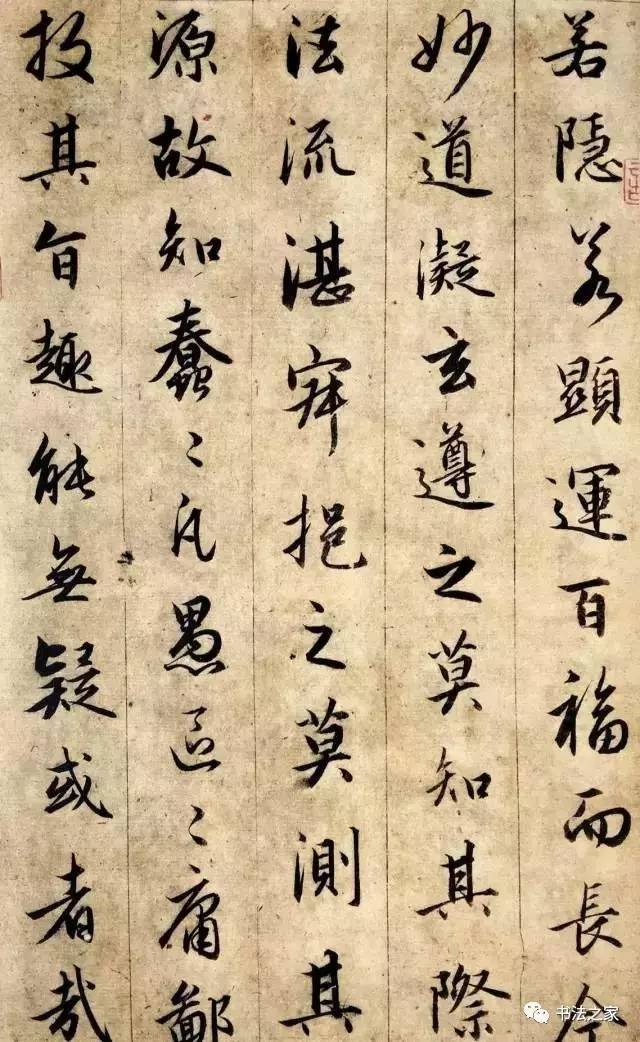 若隱若顯運百福而長今
妙道凝玄遵之莫知其際
法流湛寂挹之莫測其
源故知蠢〻凡愚區〻庸鄙
投其旨趣能無疑或者哉
书法之家